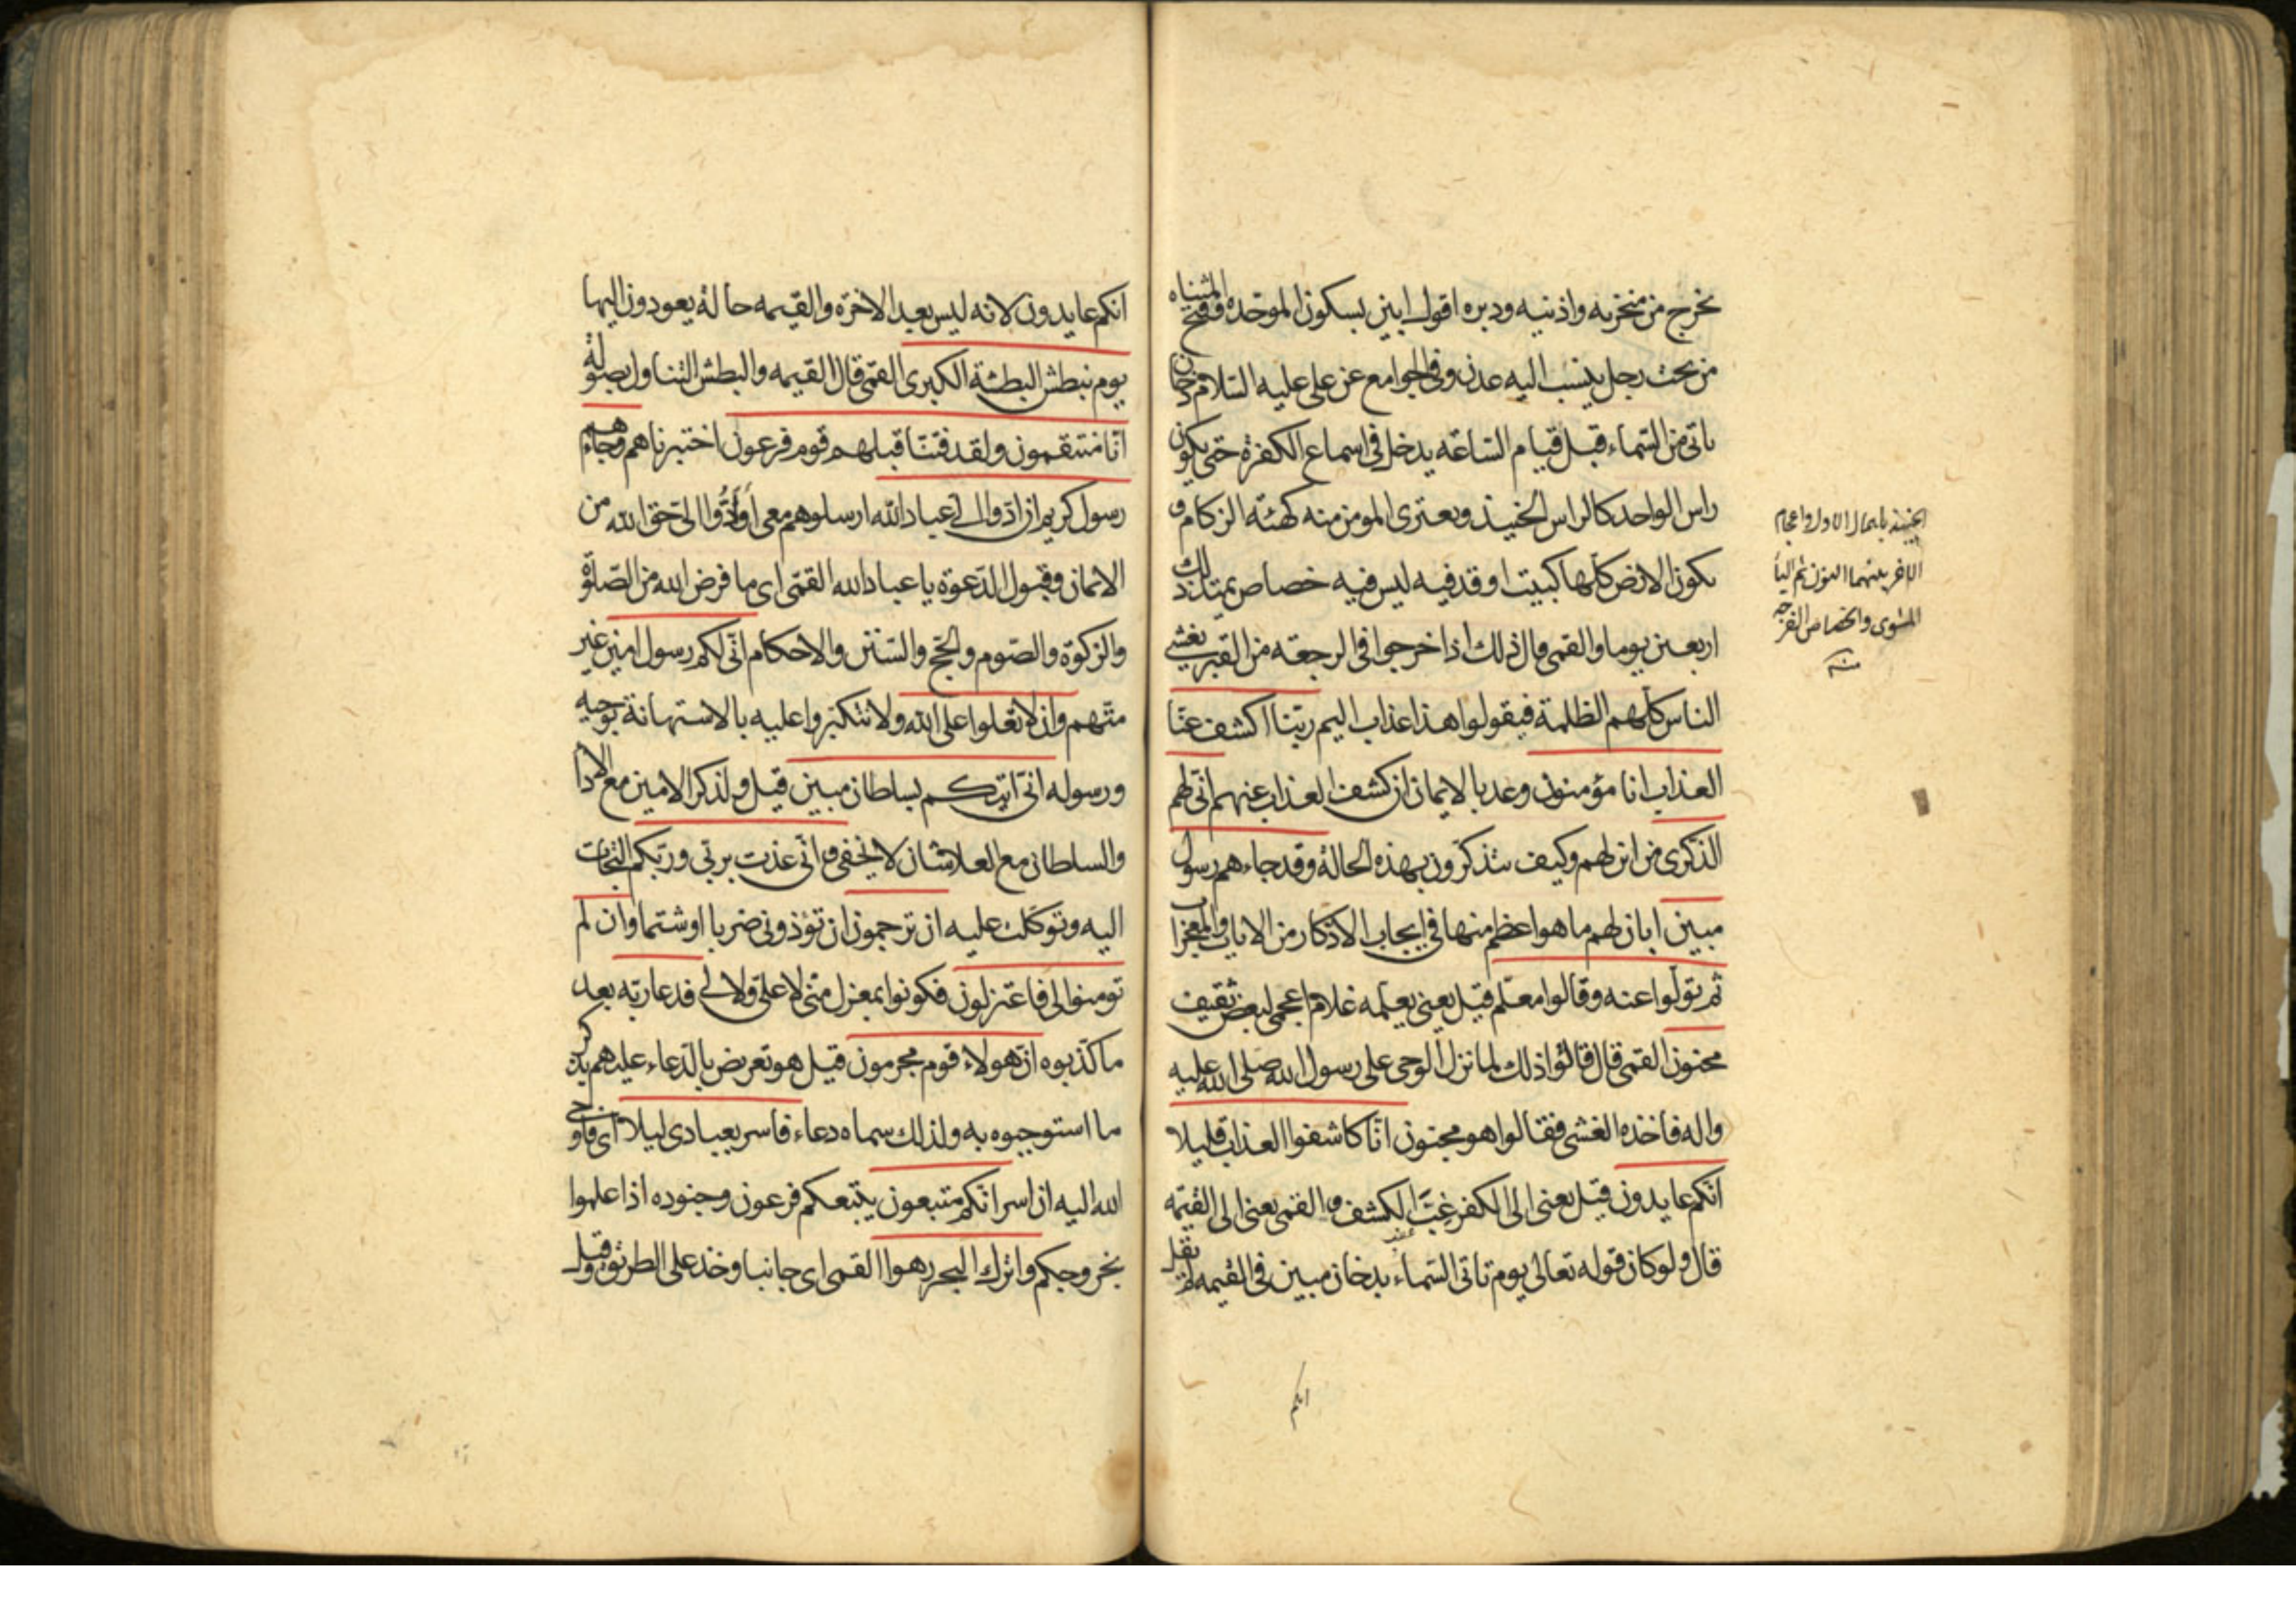 يخرج من منخريه واذنيه ودبره اقول ابين بسكون الموحده وفتح المثناه
من تحت رجل ينسب اليه عدن وفي الجوامع عن علي عليه السلام دخان
ياتي من السماء قبل قيام الساعه يدخل في اسماع الكفرة حتى يكون
راس الواحد كالراس الحنيذ ويعتري المومن منه كهيئة الزكام و
يكون الارض كلها كبيت اوقد فيه ليس فيه خصاص يمتد ذلك
اربعين يوما والقمي قال ذلك اذا خرجوا في الرجعه من القبر يغشي
الناس كلهم الظلمة فيقولوا هذا عذاب اليم ربنا اكشف عنا
العذاب انا مؤمنون وعد بالايمان ان كشف العذاب عنهم انى لهم
الذكرى من اين لهم وكيف يتذكرون بهذه الحالة وقد جاءهم رسول
مبين ابان لهم ما هو اعظم منها في ايجاب الاذكار من الايات والمعجزات
ثم تولوا عنه وقالوا معلم قيل يعني يعلمه غلام اعجمي لبعض ثقيف
مجنون القمي قال قالوا ذلك لما نزل الوحي على رسول الله صلى الله عليه
واله فاخذه الغشي فقالوا هو مجنون انا كاشفوا العذاب قليلا
انكم عايدون قيل يعني الى الكفر غب الكشف و القمي يعني الى القيمه
قال ولو كان قوله تعالى يوم تاتي السماء بدخان مبين في القيمه لم يقل
انكم
الحنيذ باهمال الاول واعجام
الاخر بينهما النون ثم اليأ
المشوي والخصاص الفرجه
منه
انكم عايدون لانه ليس بعد الاخرة والقيمه حالة يعودون اليها
يوم نبطش البطشة الكبرى القمي قال القيمه والبطش التناول بصولة
انا منتقمون ولقد فتنا قبلهم قوم فرعون اختبرناهم وجاءهم
رسول كريم ان ادوا الي عباد الله ارسلوهم معي او ادوا الي حق الله من
الايمان وقبول الدعوة يا عباد الله القمي اي ما فرض الله من الصلوة
والزكوة والصوم والحج والسنن والاحكام اني لكم رسول امين غير
متهم وان لا تعلوا على الله ولا تتكبروا عليه بالاستهانة بوحيه
ورسوله اني اتيكم بسلطان مبين قيل ولذكر الامين مع الادا
والسلطان مع العلا شان لا يخفى و اني عذت بربي وربكم التجات
اليه وتوكلت عليه ان ترجمون ان تؤذوني ضربا او شتما وان لم
تومنوا لي فاعتزلون فكونوا بمعزل مني لا علي ولا لي فدعا ربه بعد
ما كذبوه ان هولاء قوم مجرمون قيل هو تعريض بالدعاء عليهم بذكر
ما استوجبوه به ولذلك سماه دعاء فاسر بعبادي ليلا اي فاوحى
الله اليه ان اسر انكم متبعون يتبعكم فرعون وجنوده اذا علموا
بخروجكم واترك البحر رهوا القمي اي جانبا وخذ على الطريق وقيل